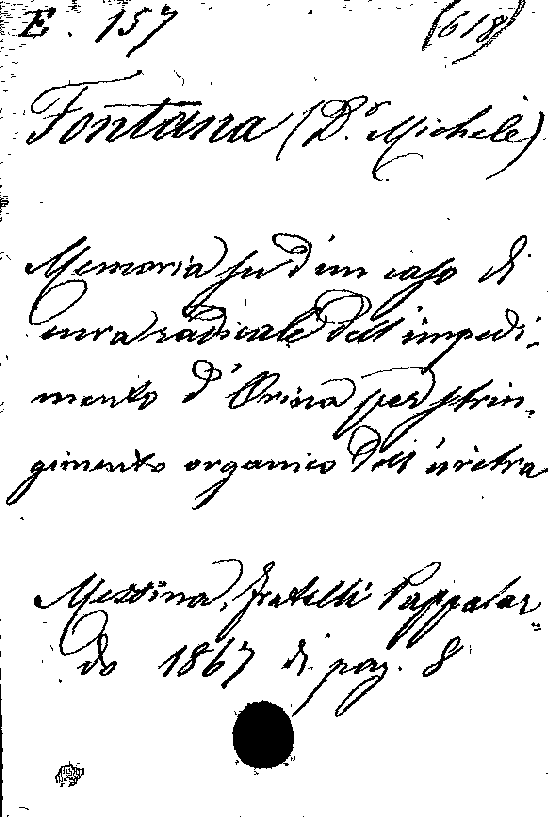 E. 157 (618)
Fontana (D.r Michele)
Memoria su d'un caso di
cura radicale dell'impedi-
mento d'Orina per strin-
gimento organico dell'uretra
Messina, Fratelli Pappalar-
do 1867 di pag. 8